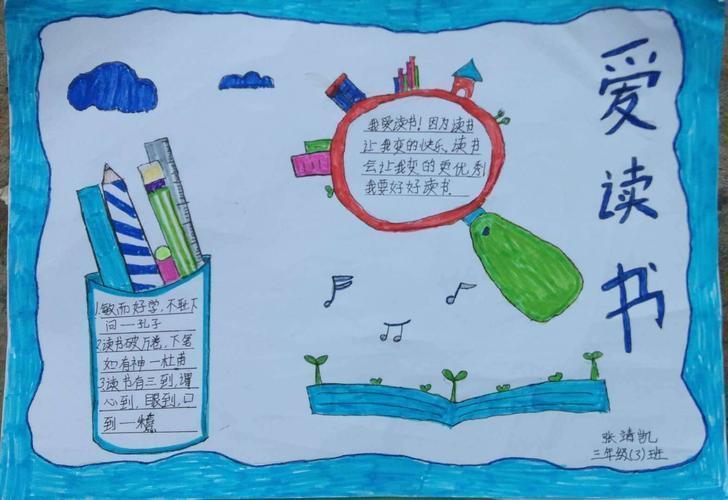 爱读书
我爱读书！因为读书
让我变的快乐、读书
会让我变的更优秀
我要好好读书.
1.敏而好学,不耻下
问一孔子
2读书破万卷,下笔
如有神一杜甫
3读书有三到,谓
心到,眼到,口
到一
张靖凯
三年级(3)班